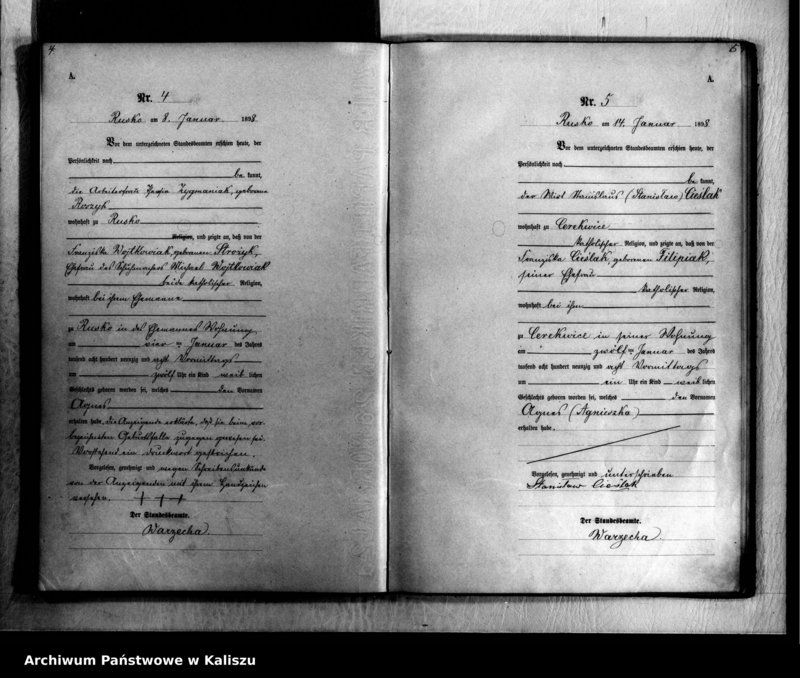 4
A.
Nr. 4
Rusko am 8. Januar 1898
Vor dem unterzeichneten Standesbeamten erschien heute, der
Persönlichkeit nach
be kannt,
die Arbeiterfrau Zygmaniak, geborene
Roszyk
wohnhaft zu Rusko
Religion, und zeigte an, daß von der
Franziska Wojtkowiak, geborenen Strożyk,
Ehefrau des Schuhmachers Michael Wojtkowiak
beide katholischer Religion,
wohnhaft bei ihrem Ehemanne
zu Rusko in des Ehemannes Wohnung
am vier ten Januar des Jahres
tausend acht hundert neunzig und acht Vormittags
um zwölf Uhr ein Kind weib lichen
Geschlechts geboren worden sei, welches den Vornamen
Agnes
erhalten habe. Die Anzeigende erklärte, daß sie beim vor-
bezeichneten Geburtsfalle zugegen gewesen sei.
Vorstehend ein Druckwort gestrichen.
Vorgelesen, genehmigt und wegen Schreibensunkunde
von der Anzeigenden mit ihrem Handzeichen
versehen. +++
Der Standesbeamte.
Warzecha.
5
A.
Nr. 5
Rusko am 14. Januar 1898
Vor dem unterzeichneten Standesbeamten erschien heute, der
Persönlichkeit nach
be kannt,
der Wirt Stanislaus (Stanisław) Cieślak
wohnhaft zu Cerekwice
katholischer Religion, und zeigte an, daß von der
Franziska Cieślak, geborenen Filipiak,
seiner Ehefrau
katholischer Religion,
wohnhaft bei ihm
zu Cerekwice in seiner Wohnung
am zwölf ten Januar des Jahres
tausend acht hundert neunzig und acht Vormittags
um ein Uhr ein Kind weib lichen
Geschlechts geboren worden sei, welches den Vornamen
Agnes (Agnieszka)
erhalten habe.
Vorgelesen, genehmigt und unterschrieben
Stanisław Cieślak
Der Standesbeamte.
Warzecha.
Archiwum Państwowe w Kaliszu